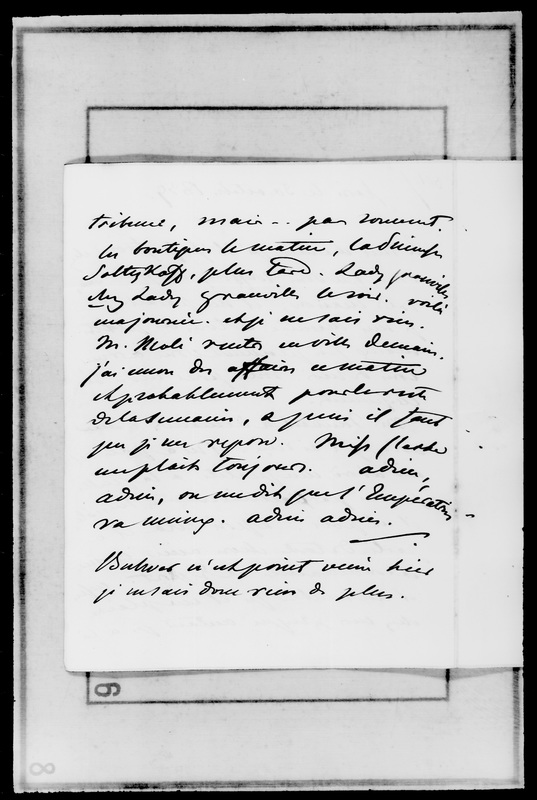 tribune, mais -- pas souvent.
les boutiques le matin, la Princesse
Soltykoff, plus tard. Lady Granville
chez Lady Granville le soir. voilà
ma journée. et je ne sais rien.
M. Molé rentre en ville demain.
j'ai encore des affaires ce matin
et probablement pour le reste
de la semaine, après il faut
que je me repose. Miss
me plait toujours. adieu,
adieu, on me dit que l'Impératrice
va mieux. adieu adieu.
Bulwer n'est point venu hier
je ne sais donc rien de plus.
6
8